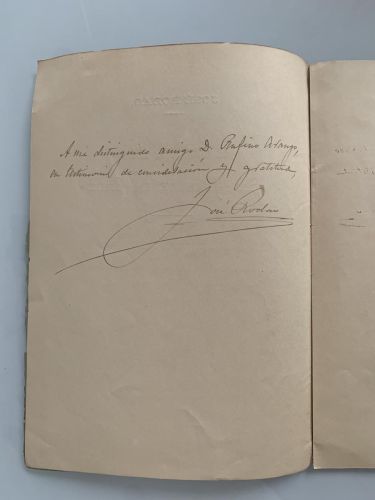 A mi distinguido amigo D. Rufino Arango,
en testimonio de consideración y gratitud
José